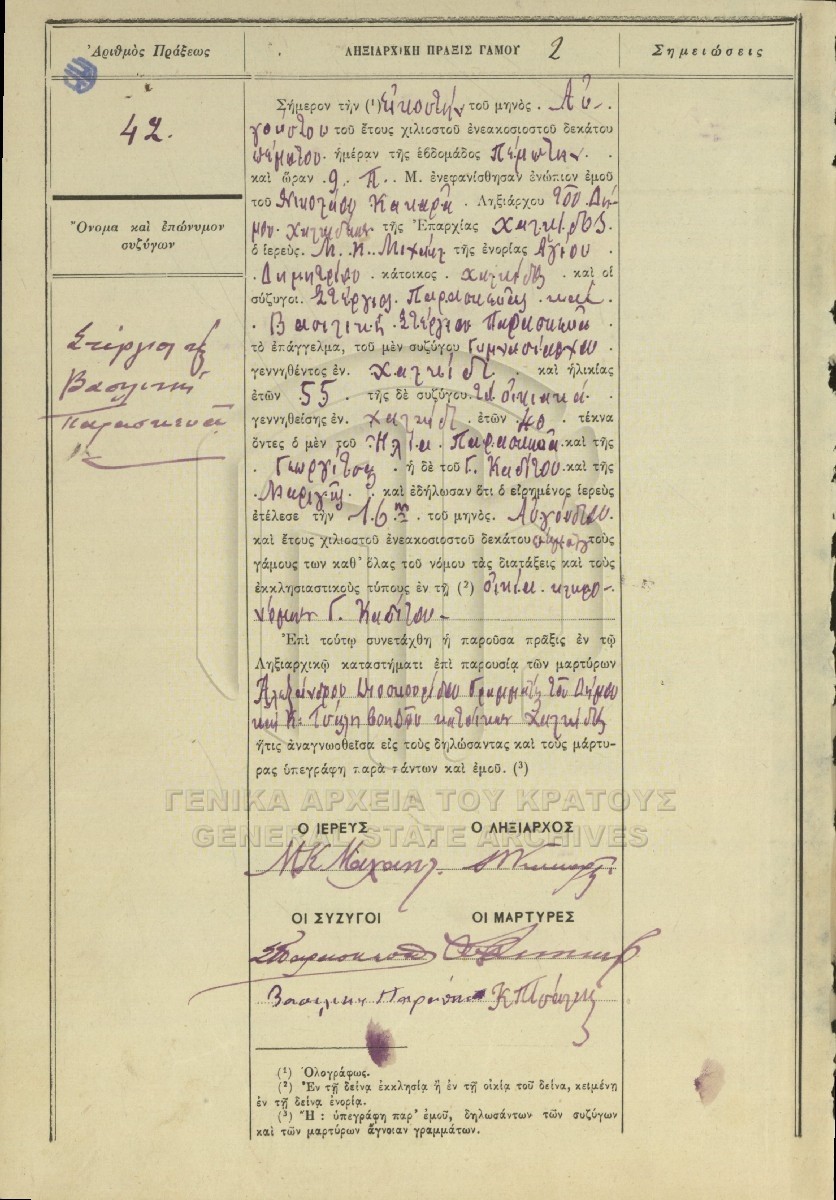 Ἀριθμὸς Πράξεως
ΛΗΞΙΑΡΧΙΚΗ ΠΡΑΞΙΣ ΓΑΜΟΥ 2
Σημειώσεις
42.
Ὄνομα καὶ ἐπώνυμον
συζύγων
Στέργιος
Βασιλικὴ
Παρασκευᾶ
Σήμερον τὴν (¹) Εἰκοστὴν τοῦ μηνὸς Αὐ-
γούστου τοῦ ἔτους χιλιοστοῦ ἐνεακοσιοστοῦ δεκάτου
πέμπτου ἡμέραν τῆς ἑβδομάδος Πέμπτην
καὶ ὥραν 9 Π. Μ. ἐνεφανίσθησαν ἐνώπιον ἐμοῦ
τοῦ Νικολάου Κακαρᾶ Ληξιάρχου τοῦ Δή-
μου Χαλκιδέων τῆς Ἐπαρχίας Χαλκίδος
ὁ ἱερεὺς Μ. Κ. Μιχαὴλ τῆς ἐνορίας Ἁγίου
Δημητρίου κάτοικος Χαλκίδος καὶ οἱ
σύζυγοι Στέργιος Παρασκευᾶς καὶ
Βασιλικὴ Στεργίου Παρασκευᾶ
τὸ ἐπάγγελμα, τοῦ μὲν συζύγου Γυμνασιάρχου
γεννηθέντος ἐν Χαλκίδι καὶ ἡλικίας
ἐτῶν 55 τῆς δὲ συζύγου τὰ οἰκιακά
γεννηθείσης ἐν Χαλκίδι ἐτῶν 40 τέκνα
ὄντες ὁ μὲν τοῦ Ἠλία Παρασκευᾶ καὶ τῆς
Γεωργίτσας ἡ δὲ τοῦ Γ. Καδίτου καὶ τῆς
Μαριγῆς καὶ ἐδήλωσαν ὅτι ὁ εἰρημένος ἱερεὺς
ἐτέλεσε τὴν 16ην τοῦ μηνὸς Αὐγούστου
καὶ ἔτους χιλιοστοῦ ἐνεακοσιοστοῦ δεκάτου πέμπτου τοὺς
γάμους των καθ' ὅλας τοῦ νόμου τὰς διατάξεις καὶ τοὺς
ἐκκλησιαστικοὺς τύπους ἐν τῇ (²) οἰκίᾳ κληρο-
νόμων Γ. Καδίτου
Ἐπὶ τούτῳ συνετάχθη ἡ παροῦσα πρᾶξις ἐν τῷ
Ληξιαρχικῷ καταστήματι ἐπὶ παρουσίᾳ τῶν μαρτύρων
Ἀλεξάνδρου Διοσκουρίδου Γραμματέως τοῦ Δήμου
καὶ Κ. κατοίκων Χαλκίδος
ἥτις ἀναγνωσθεῖσα εἰς τοὺς δηλώσαντας καὶ τοὺς μάρτυ-
ρας ὑπεγράφη παρὰ πάντων καὶ ἐμοῦ. (³)
ΓΕΝΙΚΑ ΑΡΧΕΙΑ ΤΟΥ ΚΡΑΤΟΥΣ
GENERAL STATE ARCHIVES
Ο ΙΕΡΕΥΣ Ο ΛΗΞΙΑΡΧΟΣ
Μ Κ Μιχαήλ
ΟΙ ΣΥΖΥΓΟΙ ΟΙ ΜΑΡΤΥΡΕΣ
ΣΠαρασκευᾶς
Βασιλικη
(¹) Ὁλογράφως.
(²) Ἐν τῇ δεῖνα ἐκκλησίᾳ ἢ ἐν τῇ οἰκίᾳ τοῦ δεῖνα, κειμένῃ
ἐν τῇ δεῖνα ἐνορίᾳ.
(³) Ἢ : ὑπεγράφη παρ' ἐμοῦ, δηλωσάντων τῶν συζύγων
καὶ τῶν μαρτύρων ἄγνοιαν γραμμάτων.